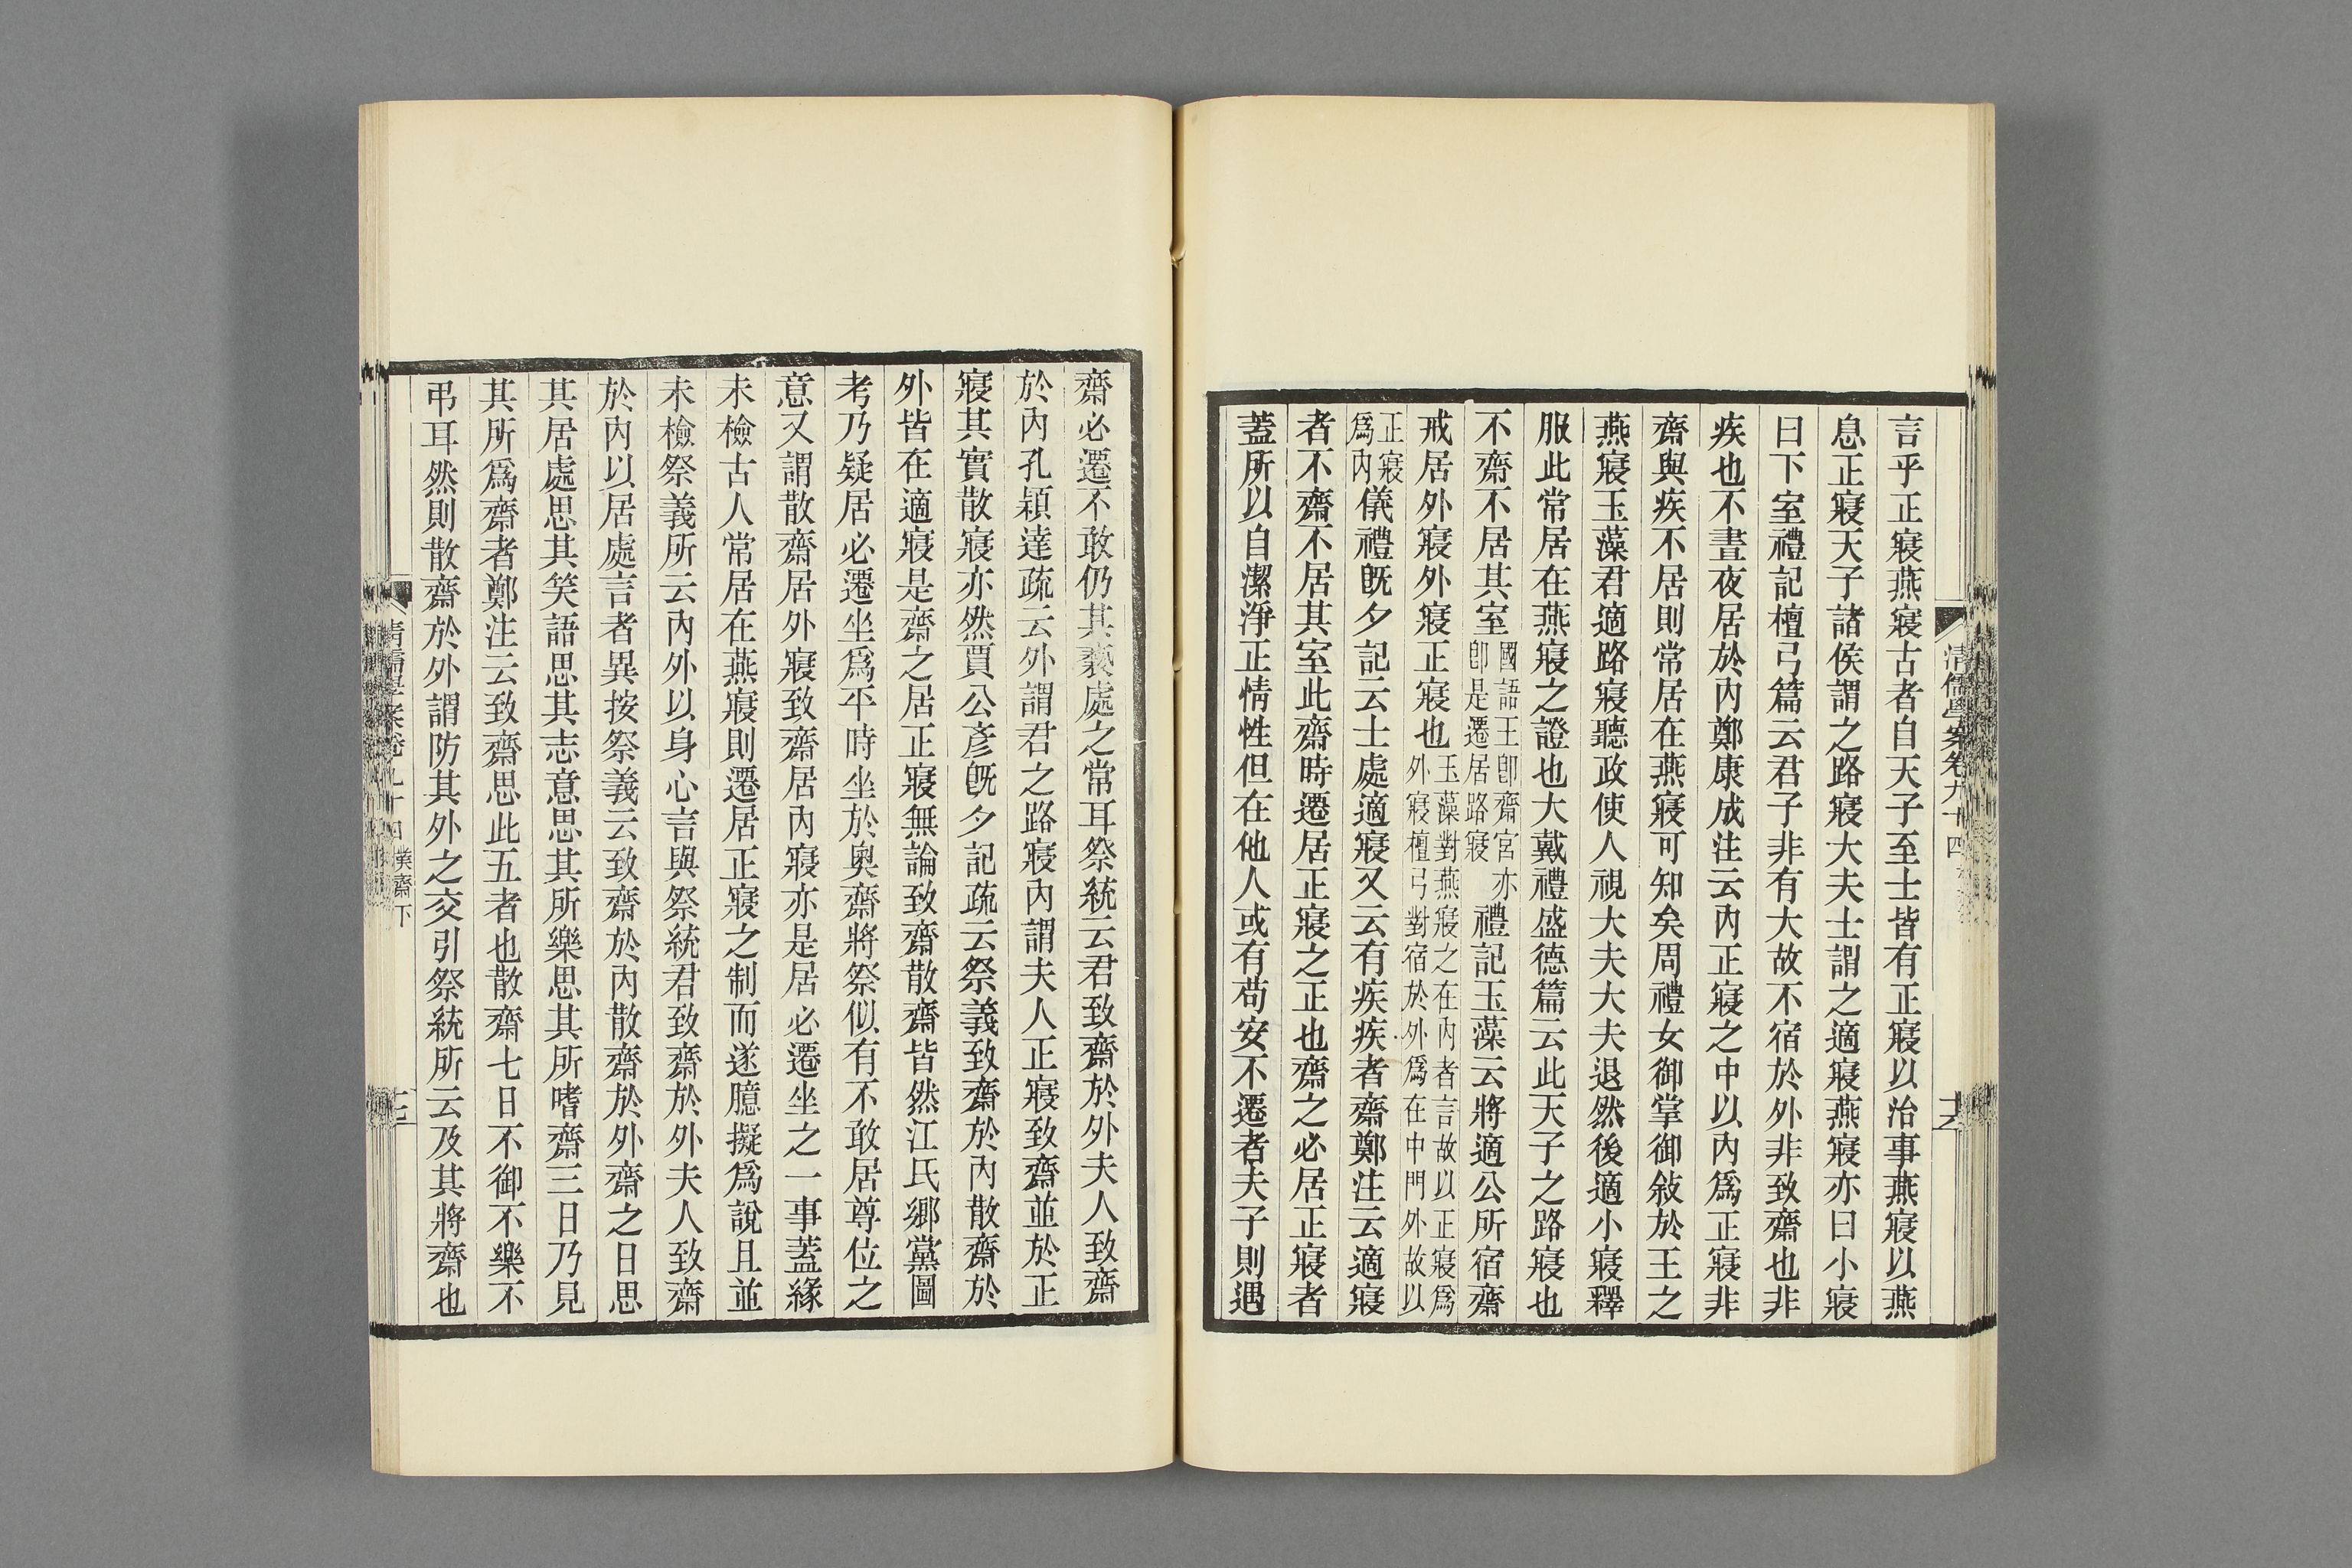 言乎正寢燕寢古者自天子至士皆有正寢以治事燕寢以燕
息正寢天子諸侯謂之路寢大夫士謂之適寢燕寢亦曰小寢
曰下室禮記檀弓篇云君子非有大故不宿於外非致齋也非
疾也不晝夜居於內鄭康成注云內正寢之中以內爲正寢非
齋與疾不居則常居在燕寢可知矣周禮女御掌御敍於王之
燕寢玉藻君適路寢聽政使人視大夫大夫退然後適小寢釋
服此常居在燕寢之證也大戴禮盛德篇云此天子之路寢也
不齋不居其室國語王卽齋宮亦卽是遷居路寢禮記玉藻云將適公所宿齋
戒居外寢外寢正寢也玉藻對燕寢之在內者言故以正寢爲外寢檀弓對宿於外爲在中門外故以
正寢爲內儀禮旣夕記云士處適寢又云有疾疾者齋鄭注云適寢
者不齋不居其室此齋時遷居正寢之正也齋之必居正寢者
蓋所以自潔淨正情性但在他人或有苟安不遷者夫子則遇
清儒學案卷九十四
十六
齋必遷不敢仍其褻處之常耳祭統云君致齋於外夫人致齋
於內孔穎達疏云外謂君之路寢內謂夫人正寢致齋並於正
寢其實散寢亦然賈公彥旣夕記疏云祭義致齋於內散齋於
外皆在適寢是齋之居正寢無論致齋散齋皆然江氏鄉黨圖
考乃疑居必遷坐爲平時坐於奧齋將祭似有不敢居尊位之
意又謂散齋居外寢致齋居內寢亦是居必遷坐之一事蓋緣
未檢古人常居在燕寢則遷居正寢之制而遂臆擬爲說且並
未檢祭義所云內外以身心言與祭統君致齋於外夫人致齋
於內以居處言者異按祭義云致齋於內散齋於外齋之日思
其居處思其笑語思其志意思其所樂思其所嗜齋三日乃見
其所爲齋者鄭注云致齋思此五者也散齋七日不御不樂不
弔耳然則散齋於外謂防其外之交引祭統所云及其將齋也
清儒學案卷九十四 樸齋下